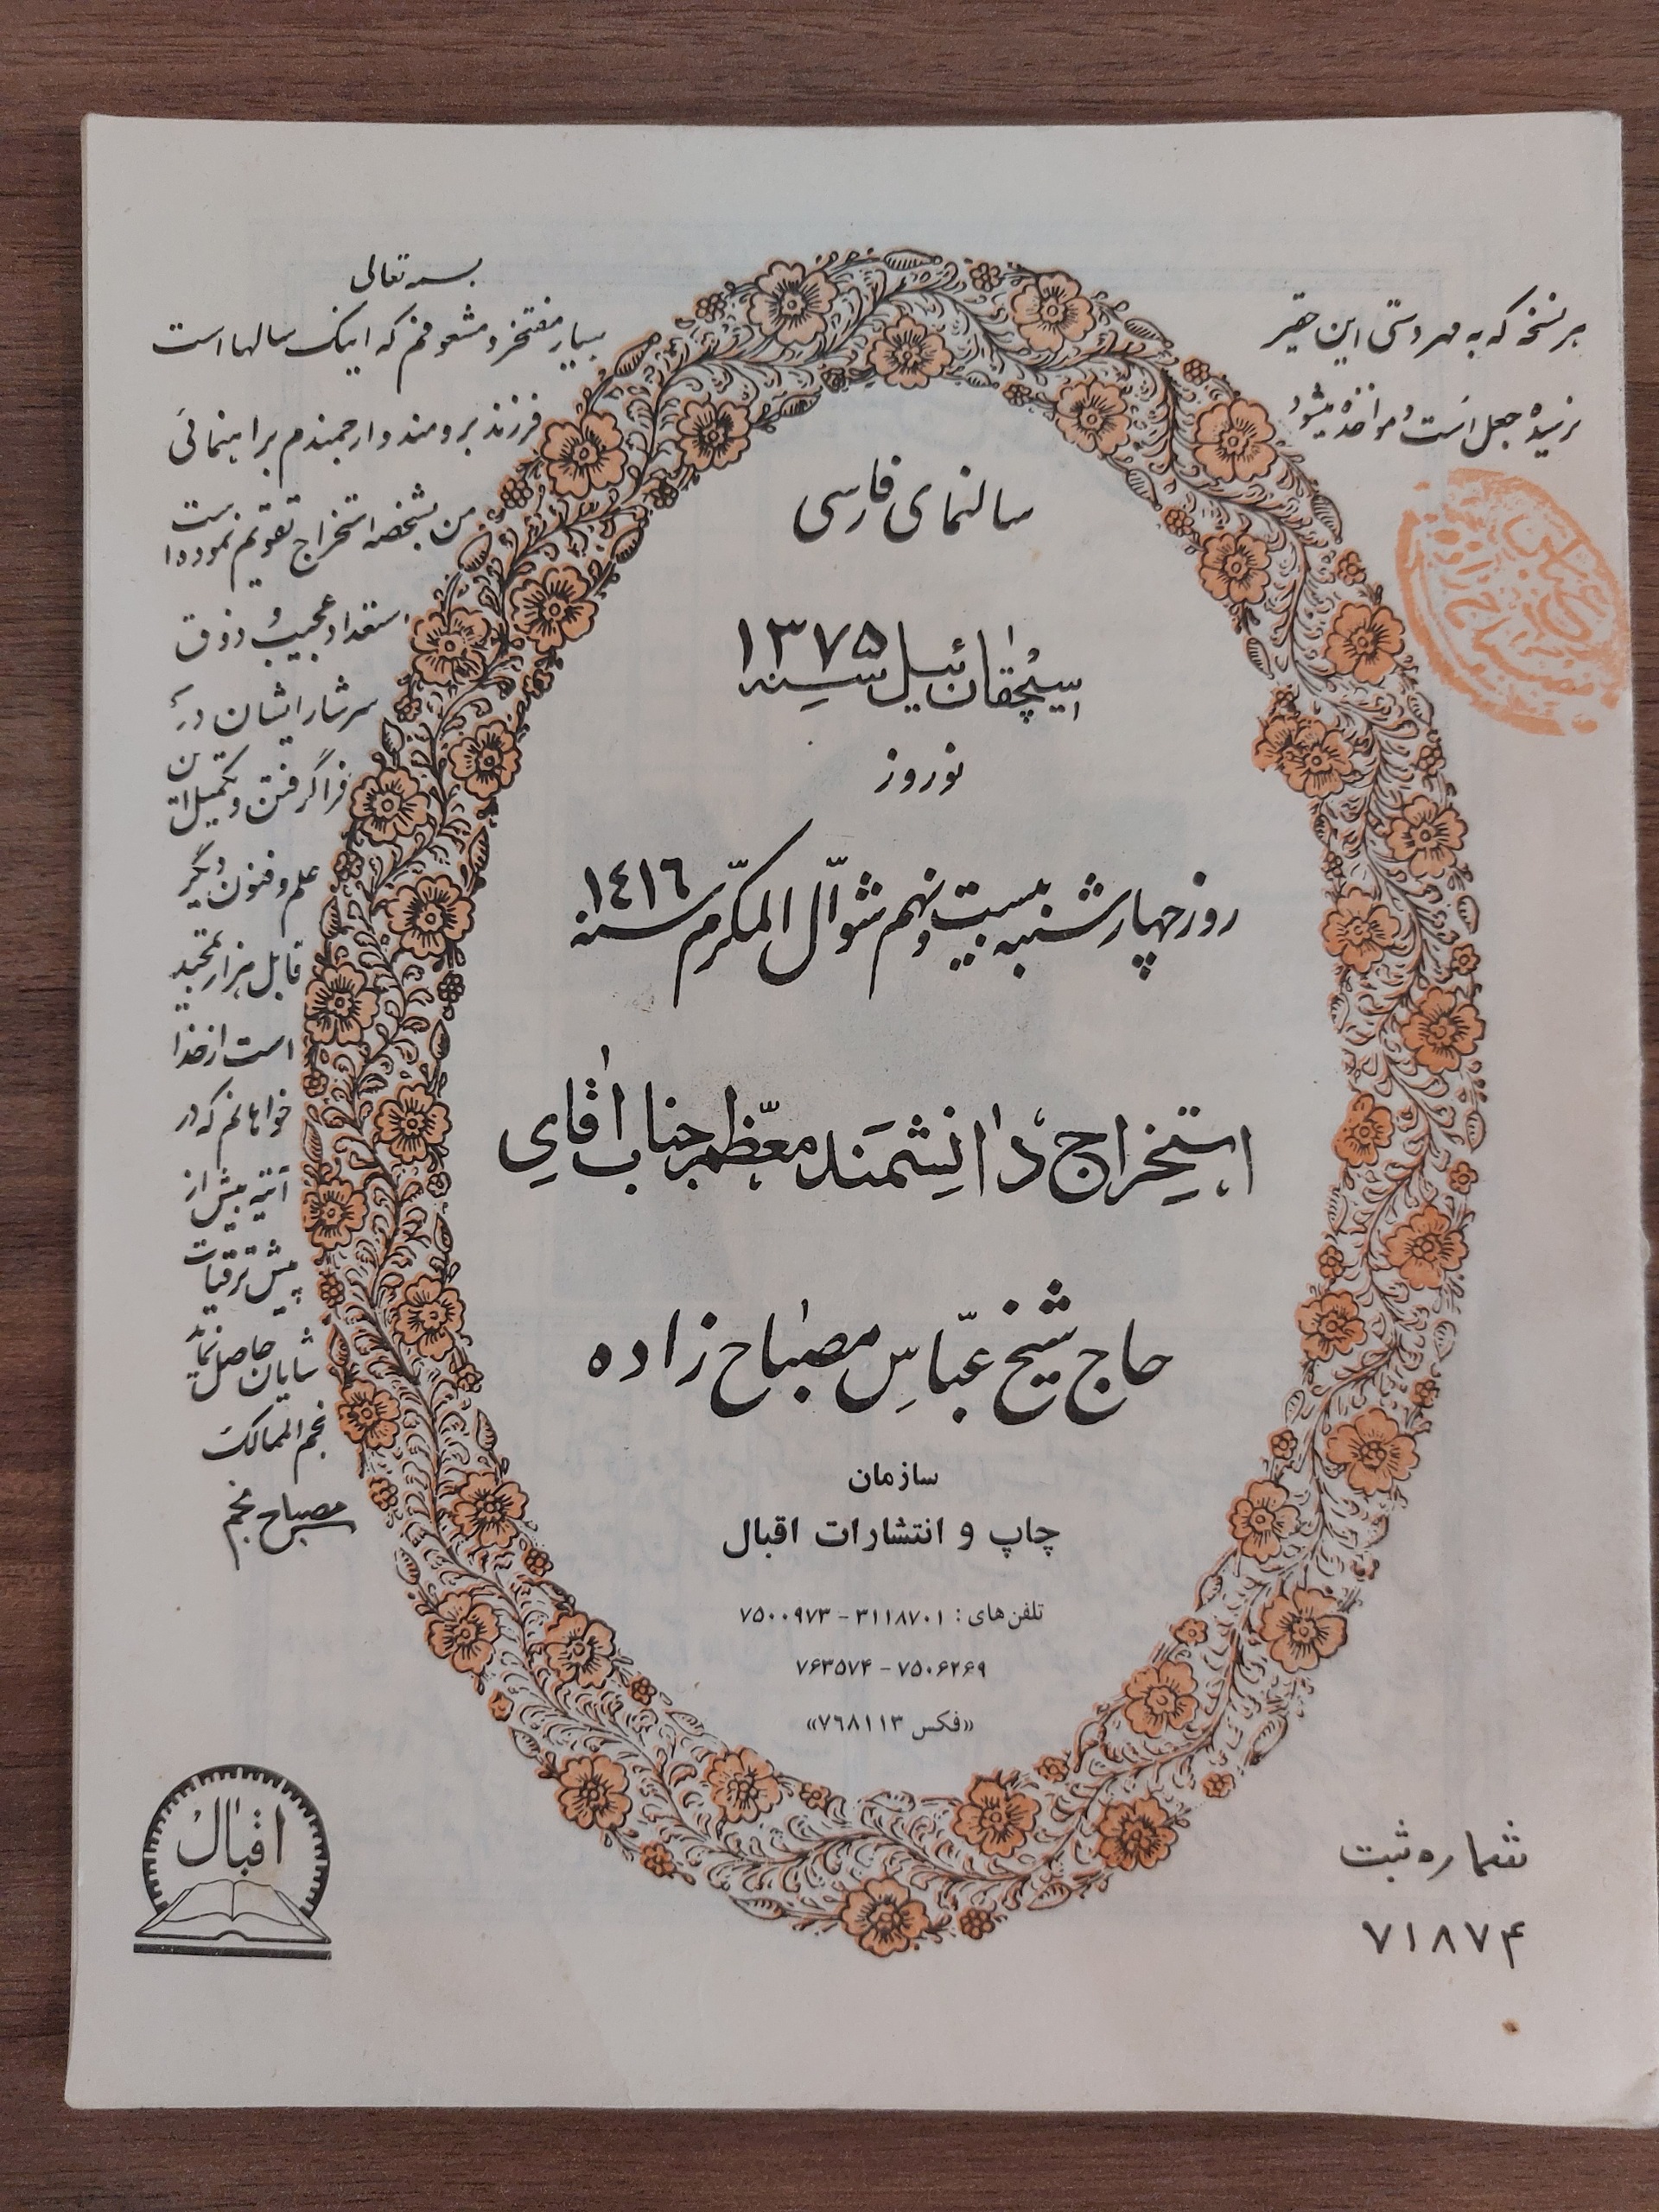 هر نسخه که به مهر دستی این حقیر
نرسیده جعل است و مؤاخذه میشود
بسمه تعالی
بسیار مفتخر و مشعوفم که اینک سالها است
فرزند برومند و ارجمندم براهنمائی
من بشخصه استخراج تقویم نموده است
استعداد عجیب و ذوق
سرشار ایشان در
فرا گرفتن و تکمیل این
علم و فنون دیگر
قابل هزار تمجید
است از خدا
خواهانم که در
آتیه بیش از
پیش ترقیات
شایان حاصل نماید
نجم الممالک
مصباح منجم
سالنمای فارسی
سیچقان ئیل سنه ۱۳۷۵
نوروز
روز چهارشنبه بیست و نهم شوّال المکرّم سنه ۱٤۱٦
استخراج دانشمند معظم جناب آقای
حاج شیخ عبّاس مصباح زاده
سازمان
چاپ و انتشارات اقبال
تلفن های : ۳۱۱۸۷۰۱ - ۷۵۰۰۹۷۳
۷۵۰۶۲۶۹ - ۷۶۳۵۷۴
«فکس ۷۶۸۱۱۳»
اقبال
شماره ثبت
۷۱۸۷۴